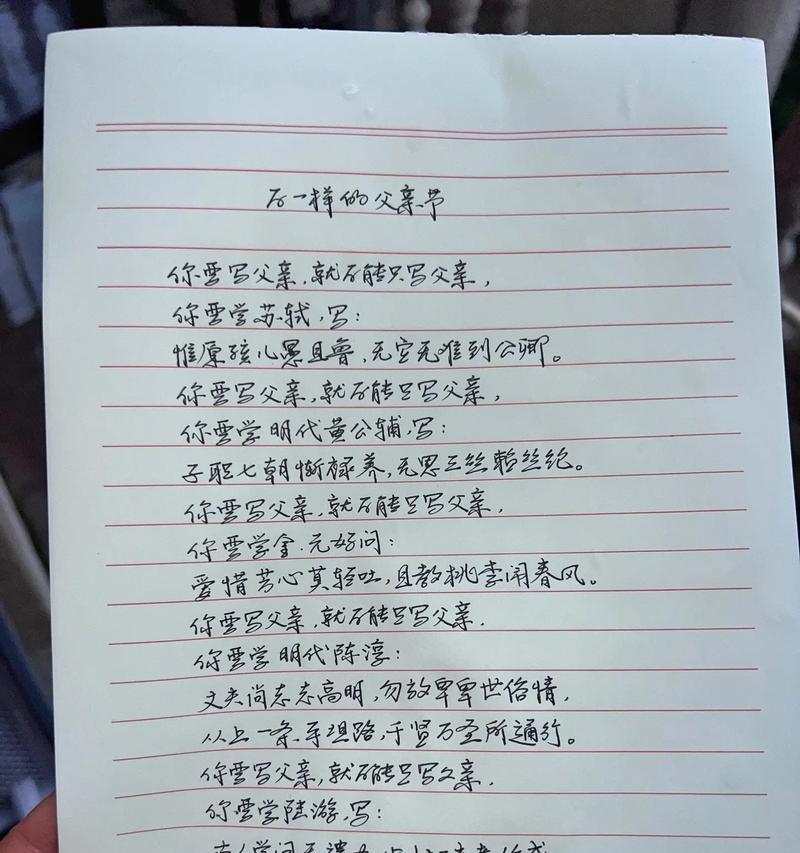 不一样的父亲节
你要写父亲,就不能只写父亲,
你要学苏轼,写:
惟原孩儿愚且鲁,无灾无难到公卿。
你要写父亲,就不能只写父亲,
你要学明代黄公辅,写:
子职七朝惭禄养,无思三丝赖丝纶。
你要写父亲,就不能只写父亲,
你要学金.元好问:
爱惜芳心莫轻吐,且教桃李闹春风。
你要写父亲,就不能只写父亲.
你要学明代陈淳:
丈夫尚志志高明,勿效卑卑世俗情,
从上一条平坦路,千贤万圣所通行。
你要写父亲,就不能只写父亲.
你要学陆游,写: